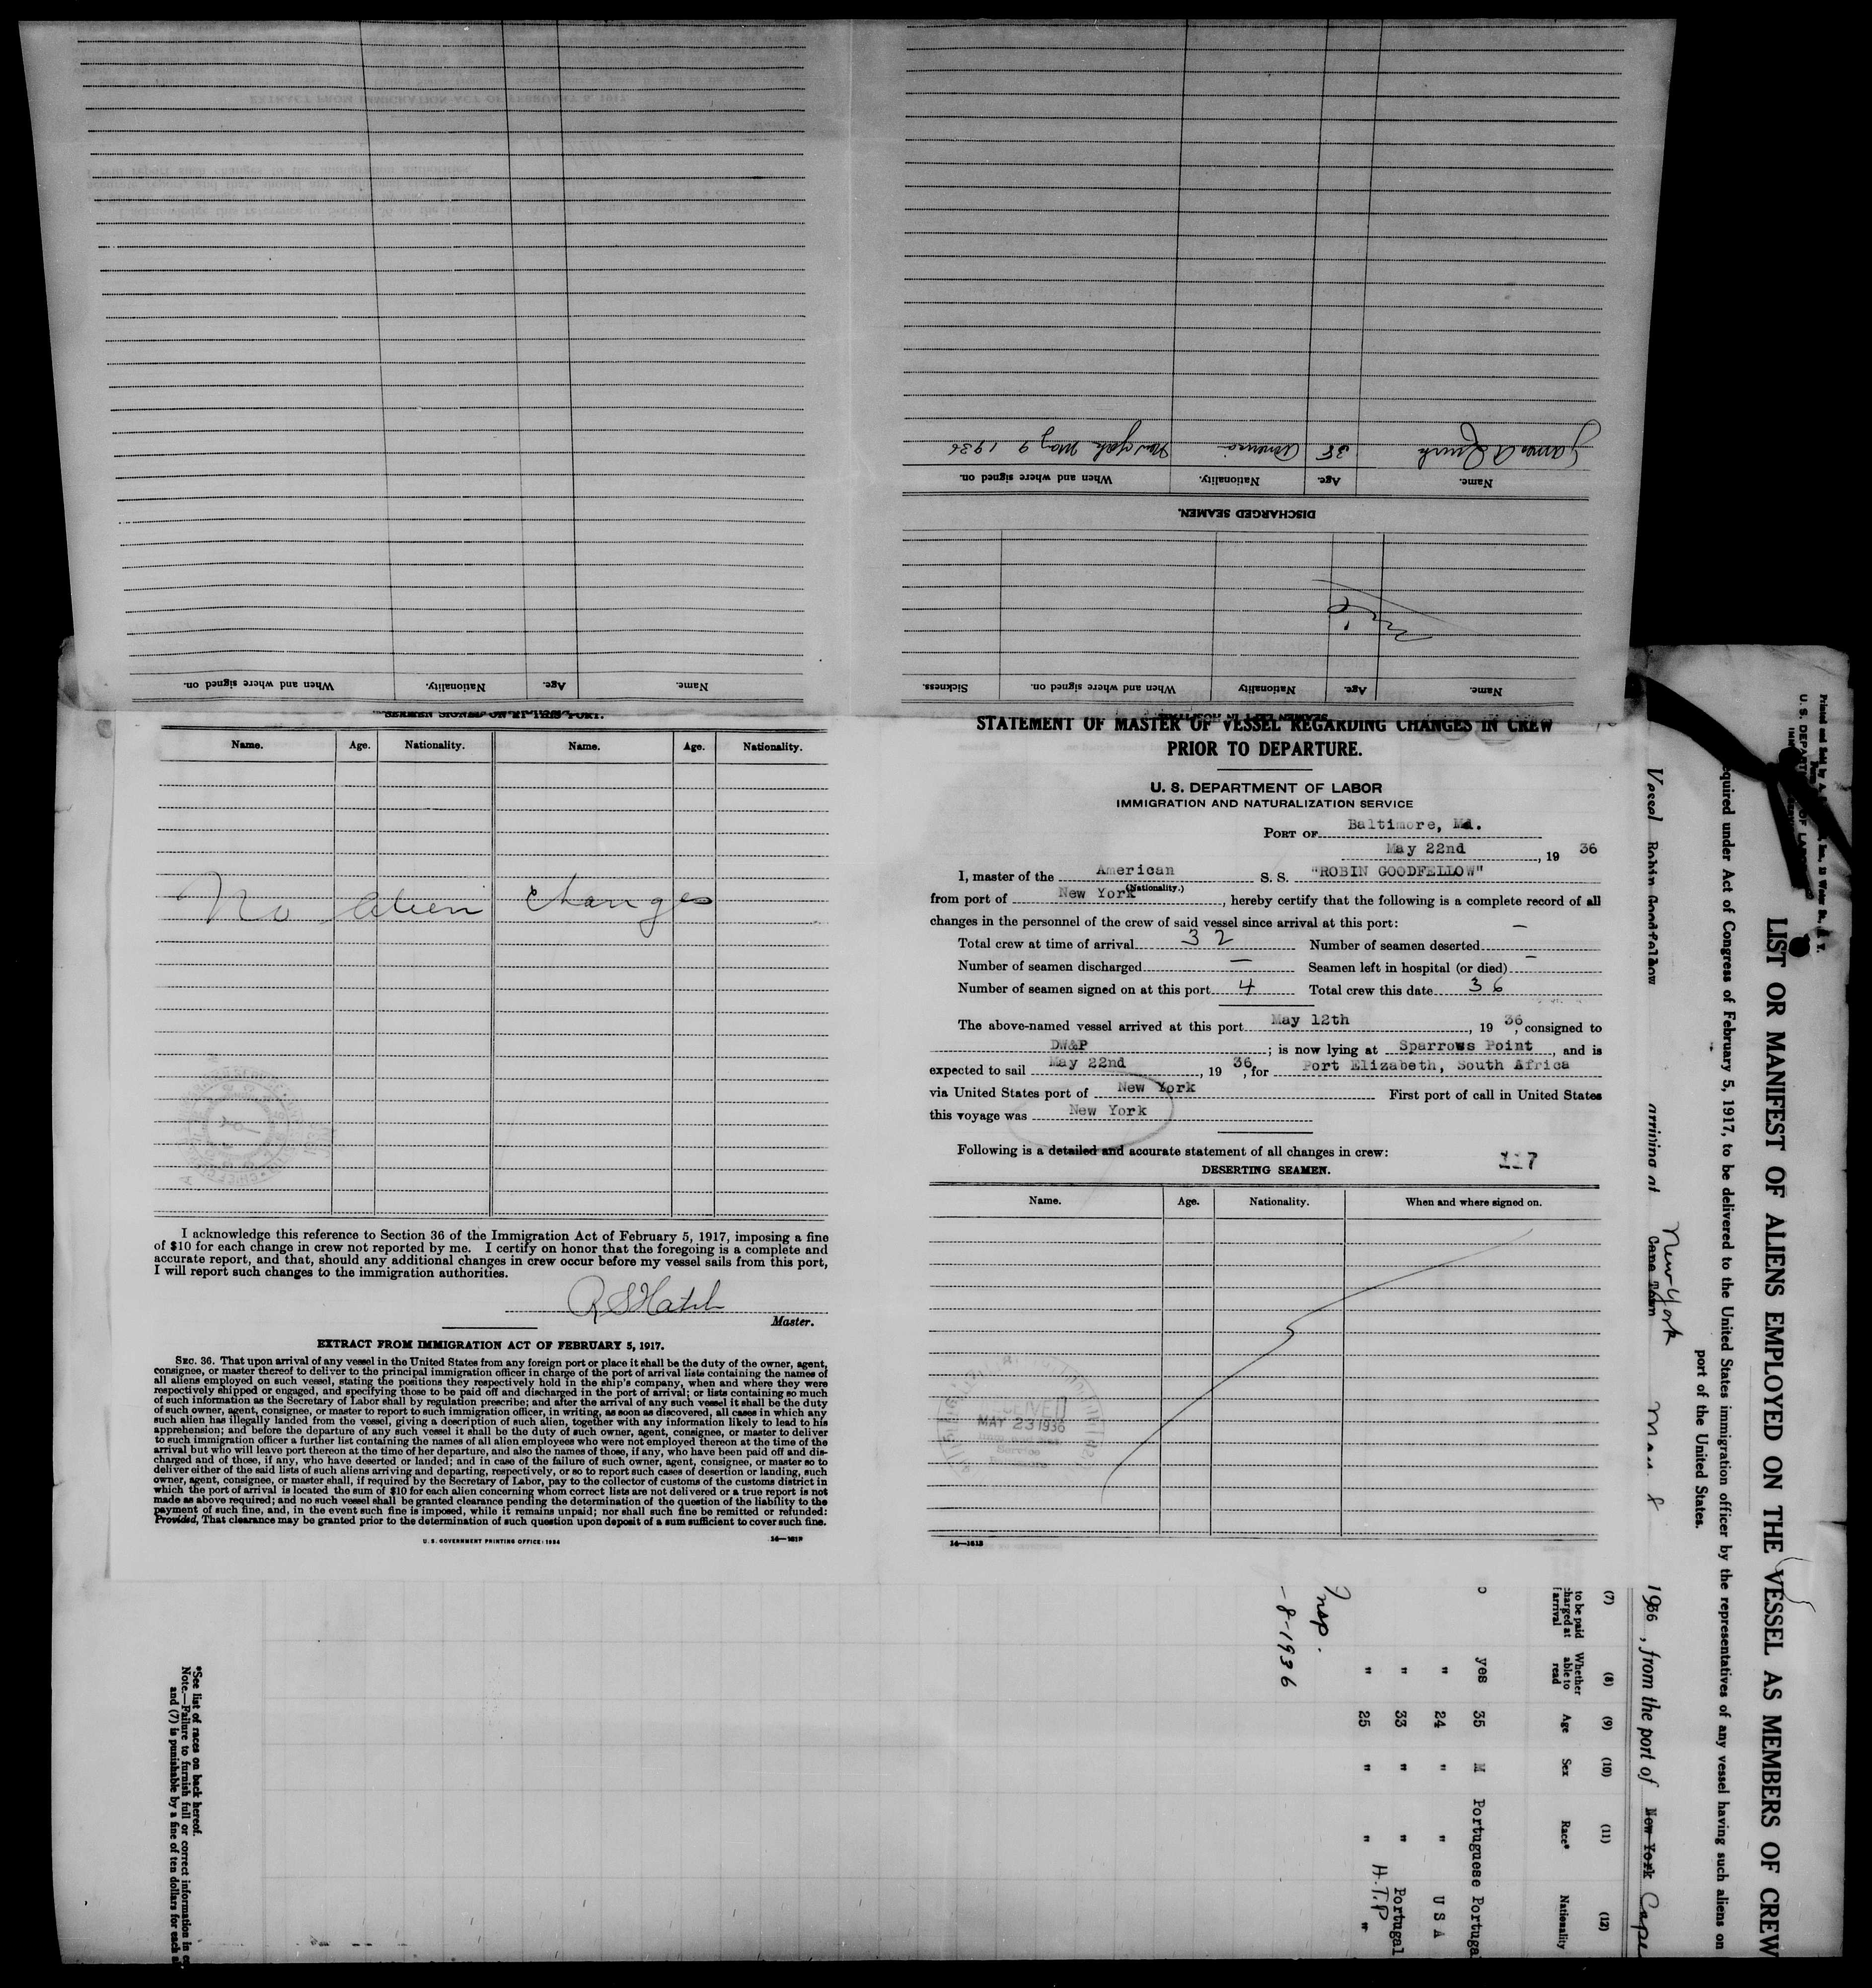 Name. Age. Nationality. When and where signed on.
Name. Age. Nationality. When and where signed on. Sickness.
DISCHARGED SEAMEN.
Name. Age. Nationality. When and where signed on.
35 New York May 9 1936
SEAMEN SIGNED ON AT THIS PORT.
Name. Age. Nationality. Name. Age. Nationality.
No Alien Changes
I acknowledge this reference to Section 36 of the Immigration Act of February 5, 1917, imposing a fine
of $10 for each change in crew not reported by me. I certify on honor that the foregoing is a complete and
accurate report, and that, should any additional changes in crew occur before my vessel sails from this port,
I will report such changes to the immigration authorities.
Master.
EXTRACT FROM IMMIGRATION ACT OF FEBRUARY 5, 1917.
SEC. 36. That upon arrival of any vessel in the United States from any foreign port or place it shall be the duty of the owner, agent,
consignee, or master thereof to deliver to the principal immigration officer in charge of the port of arrival lists containing the names of
all aliens employed on such vessel, stating the positions they respectively hold in the ship's company, when and where they were
respectively shipped or engaged, and specifying those to be paid off and discharged in the port of arrival; or lists containing so much
of such information as the Secretary of Labor shall by regulation prescribe; and after the arrival of any such vessel it shall be the duty
of such owner, agent, consignee, or master to report to such immigration officer, in writing, as soon as discovered, all cases in which any
such alien has illegally landed from the vessel, giving a description of such alien, together with any information likely to lead to his
apprehension; and before the departure of any such vessel it shall be the duty of such owner, agent, consignee, or master to deliver
to such immigration officer a further list containing the names of all alien employees who were not employed thereon at the time of the
arrival but who will leave port thereon at the time of her departure, and also the names of those, if any, who have been paid off and dis-
charged and of those, if any, who have deserted or landed; and in case of the failure of such owner, agent, consignee, or master so to
deliver either of the said lists of such aliens arriving and departing, respectively, or so to report such cases of desertion or landing, such
owner, agent, consignee, or master shall, if required by the Secretary of Labor, pay to the collector of customs of the customs district in
which the port of arrival is located the sum of $10 for each alien concerning whom correct lists are not delivered or a true report is not
made as above required; and no such vessel shall be granted clearance pending the determination of the question of the liability to the
payment of such fine, and, in the event such fine is imposed, while it remains unpaid; nor shall such fine be remitted or refunded:
Provided, That clearance may be granted prior to the determination of such question upon deposit of a sum sufficient to cover such fine.
U. S. GOVERNMENT PRINTING OFFICE: 1934
STATEMENT OF MASTER OF VESSEL REGARDING CHANGES IN CREW
PRIOR TO DEPARTURE.
U. S. DEPARTMENT OF LABOR
IMMIGRATION AND NATURALIZATION SERVICE
PORT OF Baltimore, Md.
May 22nd, 19 36
I, master of the American S. S. "ROBIN GOODFELLOW"
(Nationality.)
from port of New York, hereby certify that the following is a complete record of all
changes in the personnel of the crew of said vessel since arrival at this port:
Total crew at time of arrival 32 Number of seamen deserted —
Number of seamen discharged — Seamen left in hospital (or died) —
Number of seamen signed on at this port 4 Total crew this date 36
The above-named vessel arrived at this port May 12th, 19 36, consigned to
DW&P; is now lying at Sparrows Point, and is
expected to sail May 22nd, 19 36, for Port Elizabeth, South Africa
via United States port of New York First port of call in United States
this voyage was New York
Following is a detailed and accurate statement of all changes in crew:
117
DESERTING SEAMEN.
Name. Age. Nationality. When and where signed on.
MAY 23 1936
14—1613
LIST OR MANIFEST OF ALIENS EMPLOYED ON THE VESSEL AS MEMBERS OF CREW
quired under Act of Congress of February 5, 1917, to be delivered to the United States immigration officer by the representatives of any vessel having such aliens on
port of the United States.
Vessel Robin Goodfellow arriving at Cape Town New York 1936, from the port of New York Cape
(7) (8) (9) (10) (11) (12)
to be paid
charged at
arrival
Whether
able to
read
Age Sex Race* Nationality
yes 35 M Portuguese Portugal
" 24 " " U S A
" 33 " " Portugal
" 25 " " "
H.T.P
Insp.
-8-1936
*See list of races on back hereof.
Note.—Failure to furnish full or correct information in
and (7) is punishable by a fine of ten dollars for each